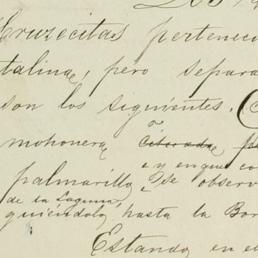 Cruzecitas pertenec
talina, pero separa
son los siguientes.
mohonera
y en que co
palmarillo se observ
de la Laguna,
guiendola hasta la Bor
Estando en e